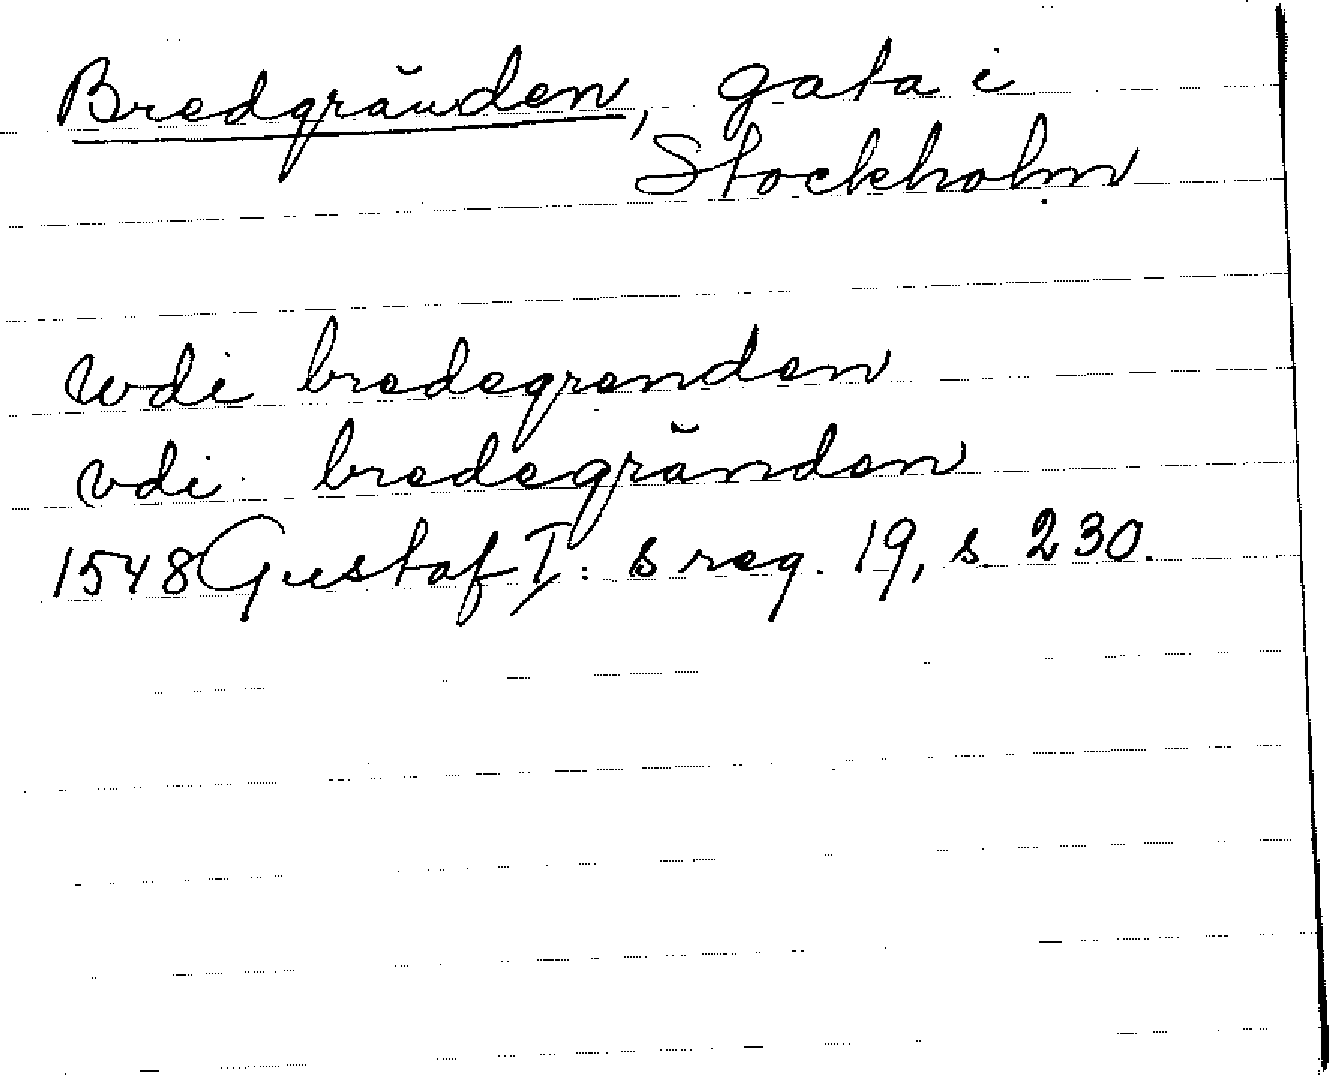 Bredgränden, gata i
Stockholm
wdi bredegrenden
vdi bredegränden
1548 Gustaf I: s reg. 19, s. 230.